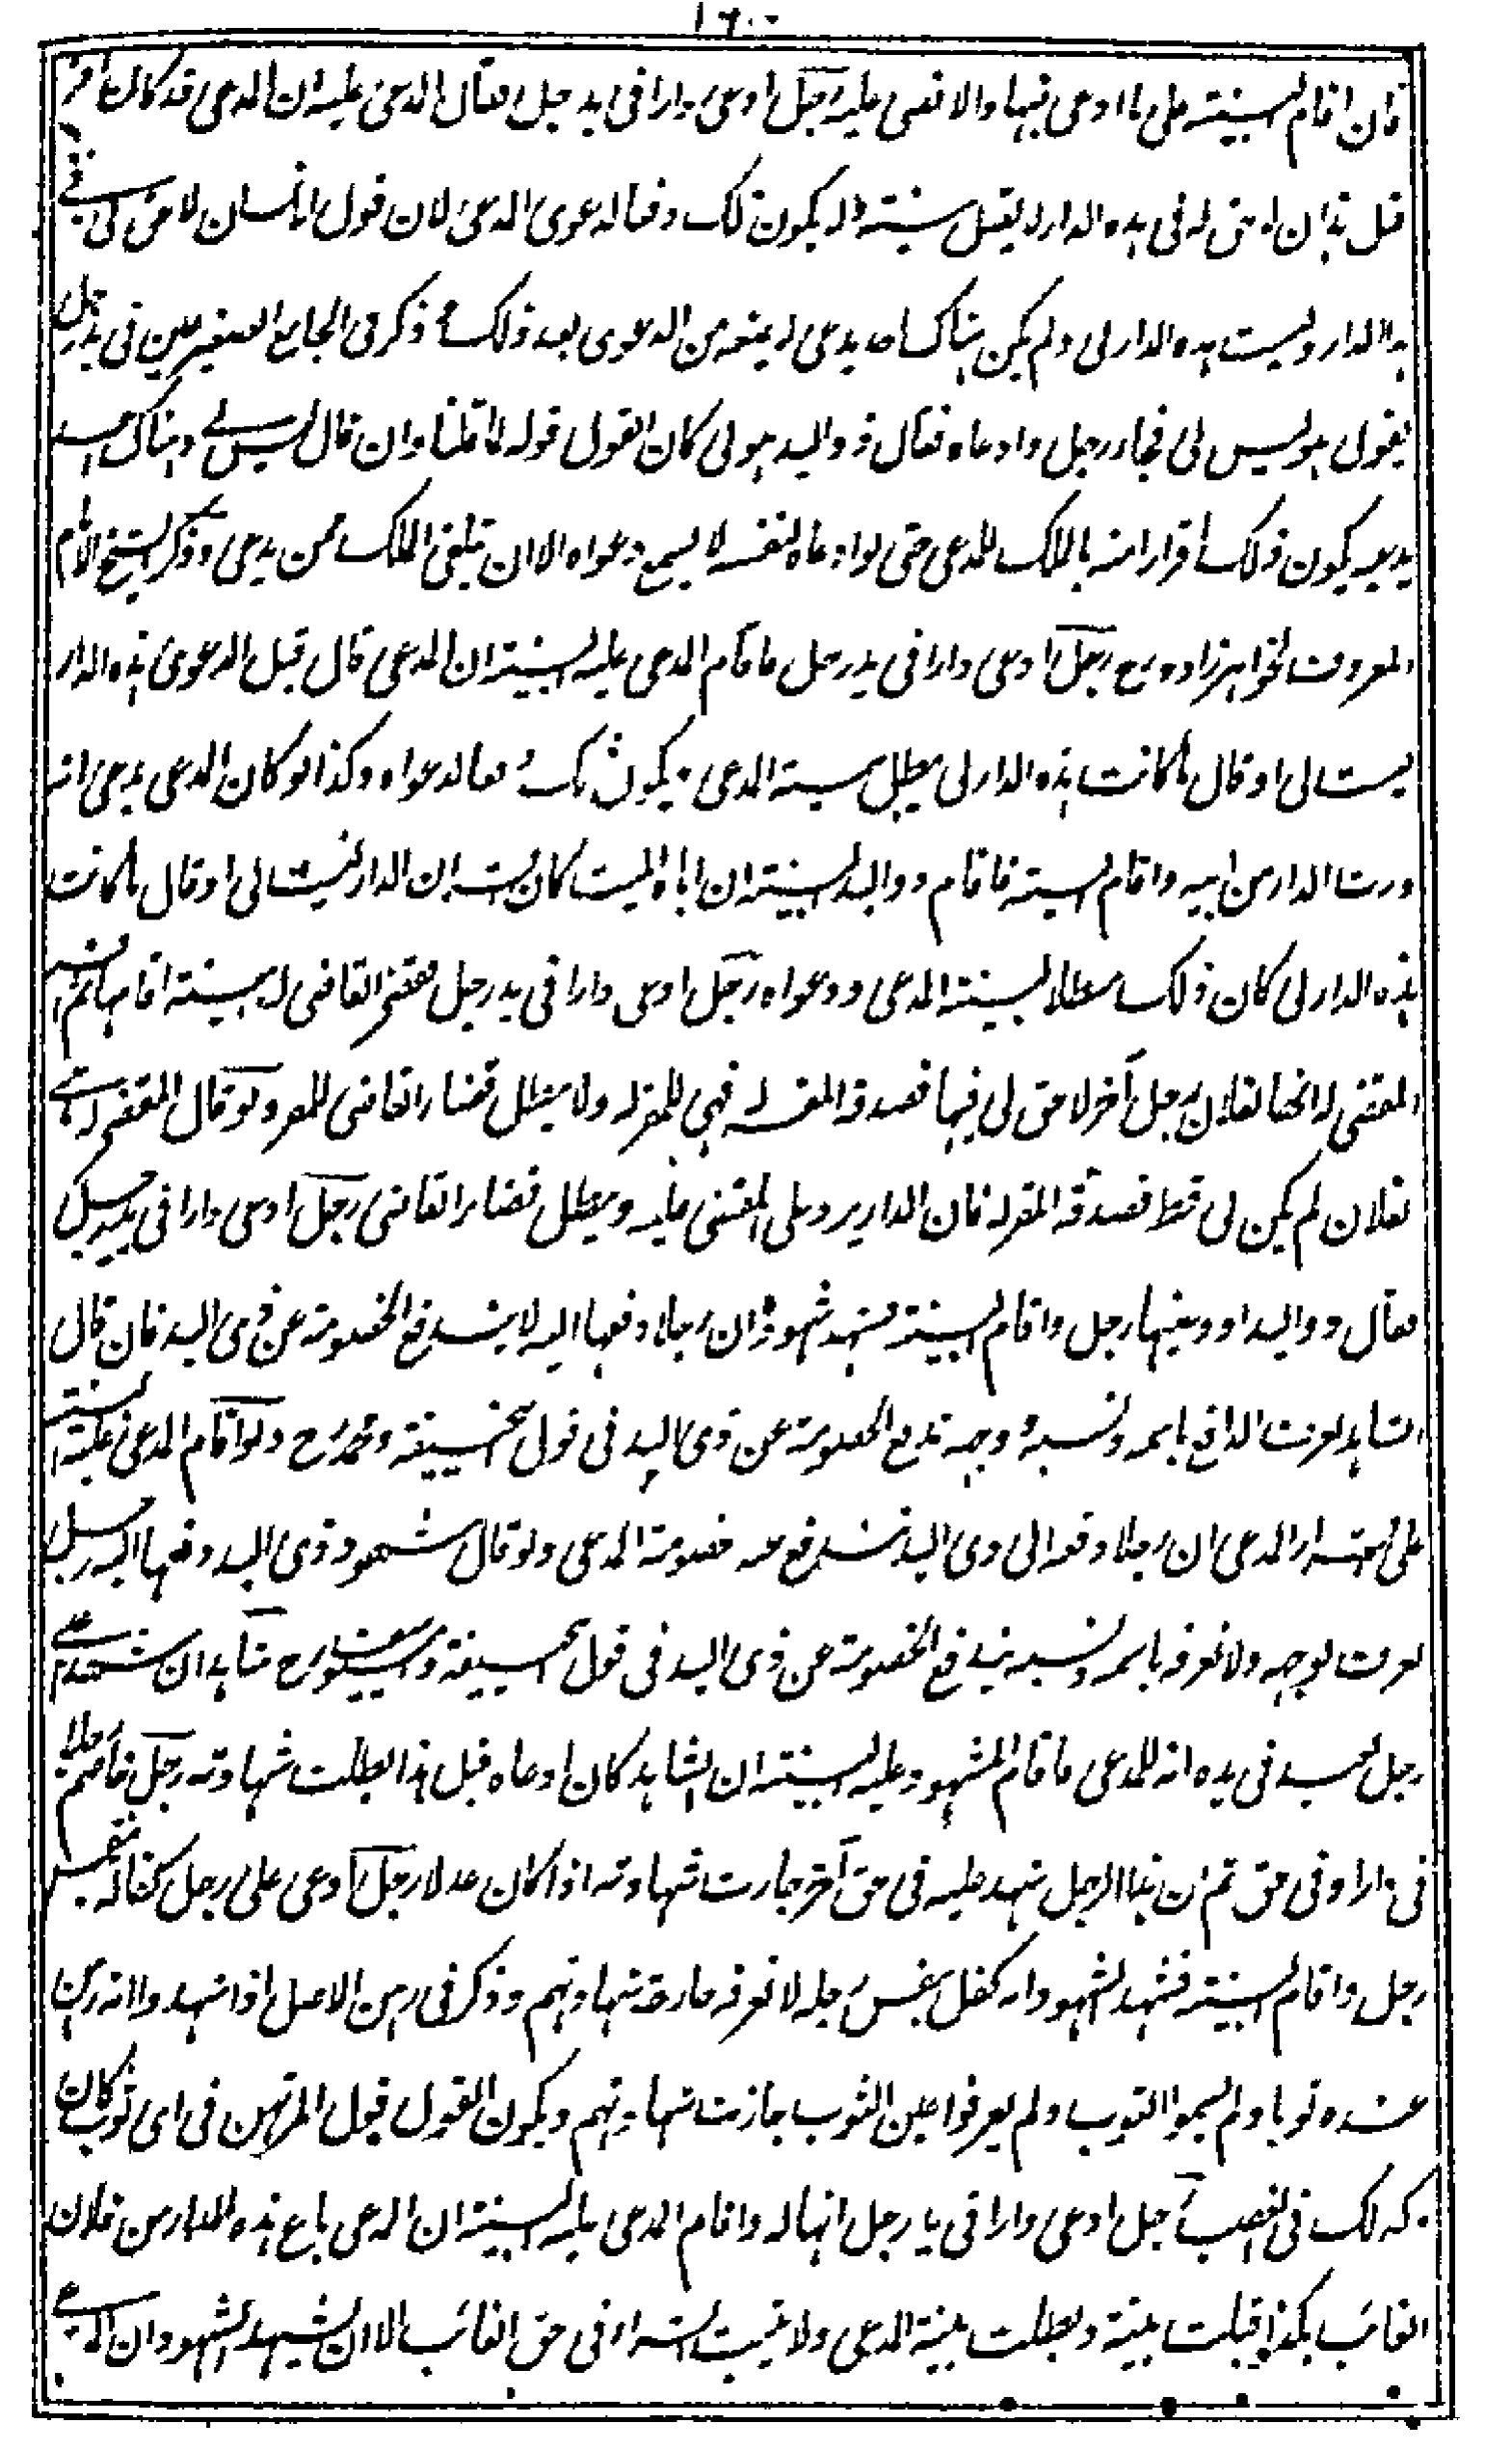 ١٦٠
فان اقام البينة على ما ادعى فبها والا قضى عليه رجل ادعى دارا في يد رجل فقال المدعى عليه ان المدعى قد كان اقر
قبل هذا ان لا حق له في هذه الدار لا يقبل بينته ولا يكون ذلك دفعا لدعوى المدعى لان قول الانسان لا حق لى في
هذا الدار وليست هذه الدار لى ولم يكن هناك احد يدعى لا يمنعه من الدعوى بعد ذلك وذكر في الجامع الصغير عين في يد رجل
يقول هو ليس لى فجاء رجل وادعاه فقال ذو اليد هو لى كان القول قوله لما قلنا وان قال ليس لى وهناك احد
يدعيه يكون ذلك اقرارا منه بالملك للمدعى حتى لو ادعاه لنفسه لا يسمع دعواه الا ان تلقى الملك ممن يدعى وذكر الشيخ الامام
المعروف بخواهرزاده رح رجل ادعى دارا في يد رجل فاقام المدعى عليه البينة ان المدعى قال قبل الدعوى هذه الدار
ليست لى او قال ما كانت هذه الدار لى يبطل بينة المدعى ويكون ذلك دفعا لدعواه وكذا لو كان المدعى يدعى انه
ورث الدار من ابيه واقام البينة فاقام ذو اليد البينة ان اباه الميت كان اقر ان الدار ليست لى او قال ما كانت
هذه الدار لى كان ذلك مبطلا لبينة المدعى ودعواه رجل ادعى دارا في يد رجل فقضى القاضى له ببينة اقامها ثم اقر
المقضى له انها لفلان رجل آخر لا حق لى فيها فصدقه المقر له فهي للمقر له ولا يبطل قضاء القاضى للمقر ولو قال المقضى له هى
لفلان لم يكن لى قط فصدقه المقر له فان الدار يرد على المقضى عليه ويبطل قضاء القاضى رجل ادعى دارا في يد رجل
فقال ذو اليد اودعنيها رجل واقام البينة فشهد شهوده ان رجلا دفعها اليه لا يندفع الخصومة عن ذى اليد فان قال
الشاهد نعرف الدافع باسمه ونسبه ووجهه تدفع الخصومة عن ذى اليد في قول ابيحنيفة ومحمد رح ولو اقام المدعى عليه البينة
على اقرار المدعى ان رجلا دفعه الى ذى اليد تندفع عنه خصومة المدعى ولو قال شهود ذى اليد دفعها اليه رجل
نعرفه بوجهه ولا نعرفه باسمه ونسبه يندفع الخصومة عن ذى اليد في قول ابيحنيفة وابى يوسف رح شاهدان شهدا على
رجل لعبد في يده انه للمدعى فاقام المشهود عليه البينة ان الشاهد كان ادعاه قبل هذا بطلت شهادته رجل خاصم رجلا
في دار او في حق ثم ان هذا الرجل شهد عليه في حق آخر جازت شهادته اذا كان عدلا رجل ادعى على رجل كفالة بنفس
رجل واقام البينة فشهد الشهود انه كفل بنفس رجل لا نعرفه جازت شهادتهم وذكر في رهن الاصل اذا شهدوا انه رهن
عنده ثوبا ولم يسموا الثوب ولم يعرفوا عين الثوب جازت شهادتهم ويكون القول قول المرتهن في اى ثوب كان
وكذلك في الغصب رجل ادعى دارا في يد رجل انها له واقام المدعى عليه البينة ان المدعى باع هذه الدار من فلان
الغائب بكذا قبلت بينته وبطلت بينة المدعى ولا يثبت الشراء في حق الغائب الا ان يشهد الشهود ان المدعى